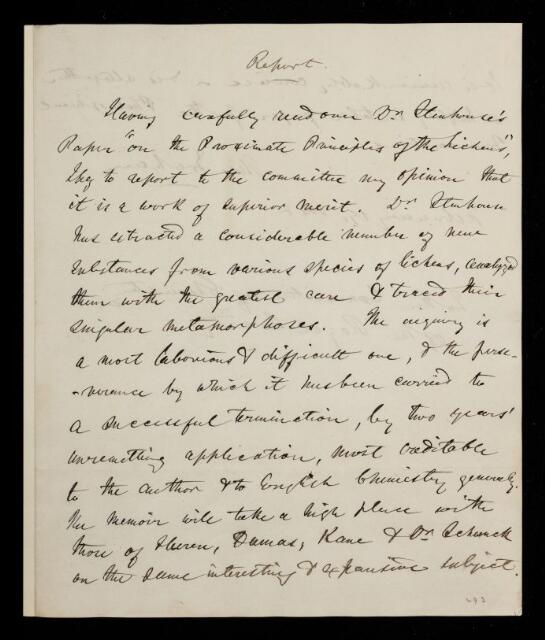 Report.
Having carefully read over Dr Stenhouse's
Paper "on the Proximate Principles of the Lichens",
I beg to report to the committee my opinion that
it is a work of superior merit. Dr Stenhouse
has extracted a considerable number of new
substances from various species of lichens, analyzed
them with the greatest care & traced their
singular metamorphoses. The inquiry is
a most laborious & difficult one, & the perse-
-verance by which it has been carried to
a successful termination, by two years'
unremitting application, most creditable
to the author & to English Chemistry generally.
The memoir will take a high place with
those of Heeren, Dumas, Kane & Dr Schunck
on the same interesting & expansive subject.